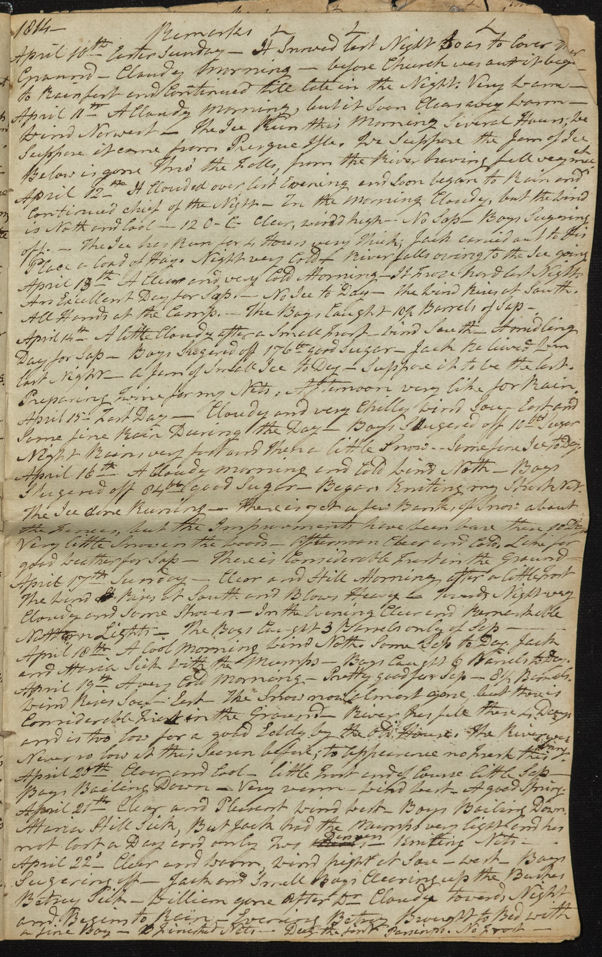 1814— Remarks
April 10th Easter Sunday — It Snowed last Night so as to Cover the
Ground — Cloudy morning — before Church was out it begun
to Rain fast and Continued till late in the Night. Very warm —
April 11th A Cloudy morning, but it soon Clears away warm —
Wind Norwest — The Ice Run this Morning Several Hours, We
Suppose it came from Presque Isle. We Suppose the Jam of Ice
Below is gone thro' the Falls, from the River having fell very much
April 12th It Clouded over last Evening and Soon began to Rain and
Continued chief of the Night — In the morning Cloudy, but the wind
is North and Cool — 12 O-C Clear, wind high — No Sap — Boys Sugering
off — The Ice has Run for 4 Hours very thick, Jack carried out to his
Place a Load of Hay — Night very Cold — River falls owing to the Ice going
April 13th A Clear and very Cold Morning — It froze hard last Night
An Excellent Day for Sap — No Ice to Day — the wind Rises at South
All Hands at the Camp — The Boys Caught 10½ Barrels of Sap —
April 14th — A little Cloudy after a Small frost — wind South — A midling
Day for Sap — Boys Sugered off 176 lb good Sugar — Jack
last Night — a Jam of Small Ice to Day — Suppose it to be the last.
Preparing twine for my Nets. Afternoon very like for Rain.
April 15 — Fast Day — Cloudy and very Chilly wind Sou-East and
Some fine Rain Dureing the Day — Boys Sugered off 112 lb Sugar
Night Rains very fast and then a little Snow — Some fine Ice to Day
April 16th A Cloudy morning and Cold wind North — Boys
Sugered off 84 lb good Sugar — Began Kniting my Net.
The Ice done Runing — There is yet a few Banks of Snow about
the Houses, but the Improvements have been bare these 10 Days
Very little Snow in the woods — afternoon Clear and Cold, Like for
good weather for Sap — There is Considerable Frost in the Ground
April 17th Sunday — Clear and Still Morning after a little frost
The Wind Rises at South and Blows Heavy — towards Night very
Cloudy and Some Shower — In the Evening Clear and Remarkable
Northern Lights — The Boys Caught 3 Barrels only of Sap —
April 18th A Cool Morning wind North Some Sap to Day. Jack
and Maria Sick with the Mumps — Boys Caught 9 Barrels to Day.
April 19th A very Cold Morning — Pretty good for Sap — 5½ Barrels
wind Rises Sou-East — The Snow most almost gone, but there is
Considerable Frost in the Ground — River has fell these 10 Days
and is too low for a good Eddy by the Old House. The River was
Never so low at this Season before, to appearance no fresh this year
April 20th Clear and Cool — little frost and of Course little Sap —
Boys Boiling Down — Very warm — wind west — A good Spring.
April 21st Clear and Pleasant wind west — Boys Boiling Down.
Maria Still Sick, But Jack had the Mumps very light and has
not lost a Day and only has been Kniting Nets —
April 22d — Clear and warm, wind fresh at Sou-west — Boys
Sugering off — Jack and Small Boys Clearing up the Bushes
Betsey Sick — William gone after Dr. Cloudy towards Night
and Begins to Rain — Evening Betsey Brought to Bed with
a fine Boy — Finished Nets — No frost —